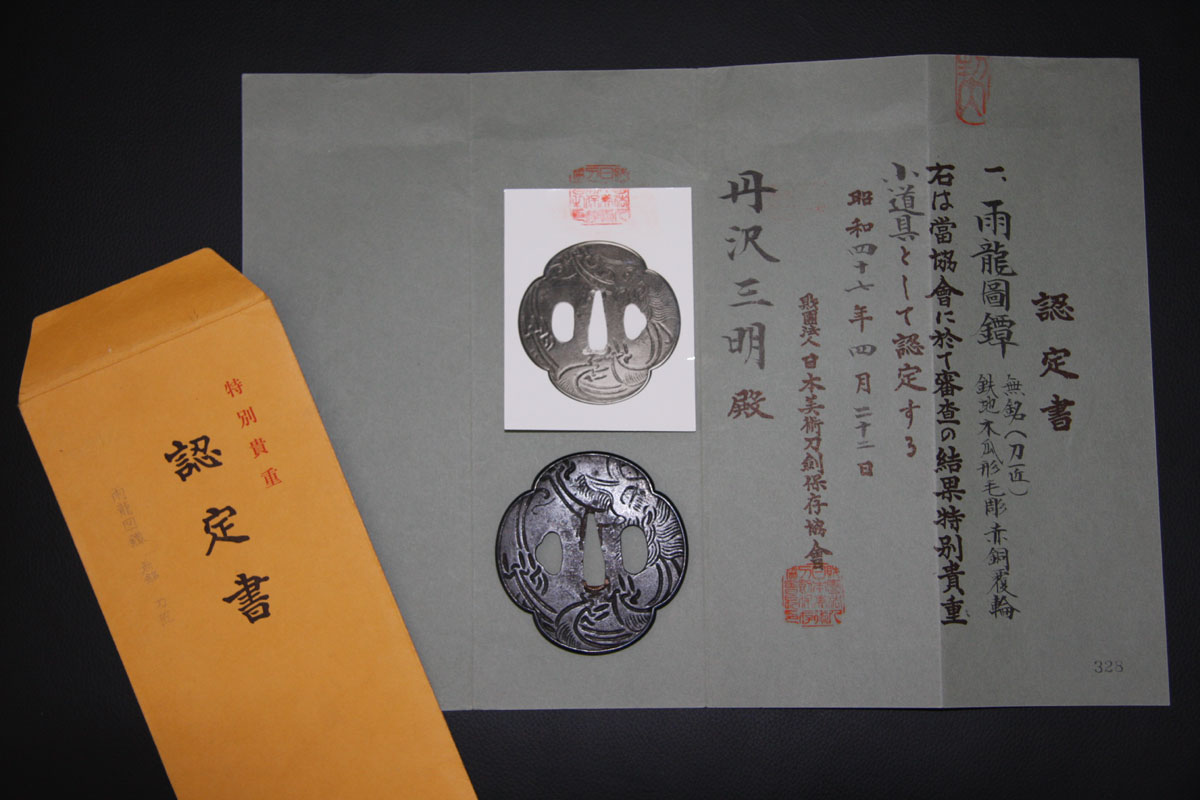 認定書
一、雨龍圖鐔
無銘(刀匠)
鉄地木瓜形毛彫赤銅覆輪
右は當協會に於て審査の結果特別貴重
小道具として認定する
昭和四十七年四月二十二日
財團法人日本美術刀剣保存協會
丹沢三明殿
328
特別貴重
認定書
雨龍図鐔 無銘